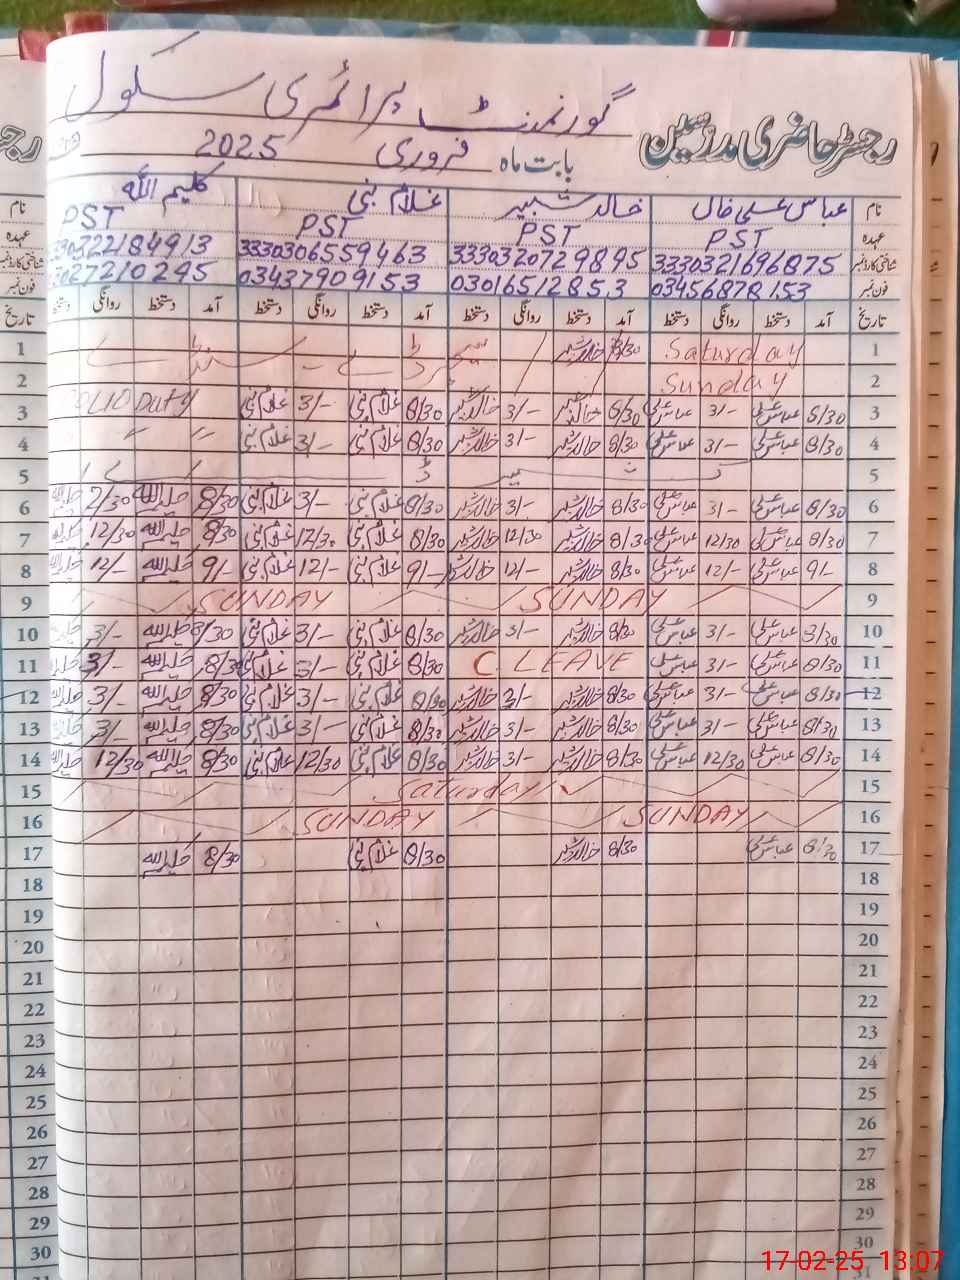 گورنمنٹ پرائمری سکول
رجسٹر حاضری مدرسین
بابت ماہ فروری 2025
نام عباس علی خان خالد شبیر غلام نبی کلیم اللہ
عہدہ PST PST PST PST
شناختی کارڈ نمبر 3330321696875 3330320729895 3330306559463
فون نمبر 03456878153 03016512853 03437909153
تاریخ آمد دستخط روانگی دستخط آمد دستخط روانگی دستخط آمد دستخط روانگی دستخط آمد دستخط روانگی دستخط تاریخ
1 Saturday 8/30 خالد شبیر 1
2 Sunday 2
3 8/30 عباس علی 3/- عباس علی 8/30 خالد شبیر 3/- خالد شبیر 8/30 غلام نبی 3/- غلام نبی Duty 3
4 8/30 عباس علی 3/- عباس علی 8/30 خالد شبیر 3/- خالد شبیر 8/30 غلام نبی 3/- غلام نبی 〃 〃 4
5 5
6 8/30 عباس علی 3/- عباس علی 8/30 خالد شبیر 3/- خالد شبیر 8/30 غلام نبی 3/- غلام نبی 8/30 کلیم اللہ 2/30 6
7 8/30 عباس علی 12/30 عباس علی 8/30 خالد شبیر 12/30 خالد شبیر 8/30 غلام نبی 12/30 غلام نبی 8/30 کلیم اللہ 12/30 7
8 9/- عباس علی 12/- عباس علی 8/30 خالد شبیر 12/- خالد شبیر 9/- غلام نبی 12/- غلام نبی 9/- کلیم اللہ 12/- 8
9 SUNDAY SUNDAY 9
10 عباس علی 3/- عباس علی 8/30 خالد شبیر 3/- خالد شبیر 8/30 غلام نبی 3/- غلام نبی 8/30 کلیم اللہ 3/- 10
11 8/30 عباس علی 3/- عباس علی C. LEAVE 8/30 غلام نبی 3/- غلام نبی 8/30 کلیم اللہ 3/- 11
12 8/30 عباس علی 3/- عباس علی 8/30 خالد شبیر خالد شبیر 8/30 غلام نبی 3/- غلام نبی 8/30 کلیم اللہ 3/- 12
13 8/30 عباس علی 3/- عباس علی 8/30 خالد شبیر 3/- خالد شبیر 8/30 غلام نبی 3/- غلام نبی 8/30 کلیم اللہ 3/- 13
14 8/30 عباس علی 12/30 عباس علی 8/30 خالد شبیر 3/- خالد شبیر 8/30 غلام نبی 12/30 غلام نبی 8/30 کلیم اللہ 12/30 14
15 Saturday 15
16 SUNDAY SUNDAY 16
17 8/30 عباس علی 8/30 خالد شبیر 8/30 غلام نبی 8/30 کلیم اللہ 17
18 18
19 19
20 20
21 21
22 22
23 23
24 24
25 25
26 26
27 27
28 28
29 29
30 30
31
17-02-25 13:07